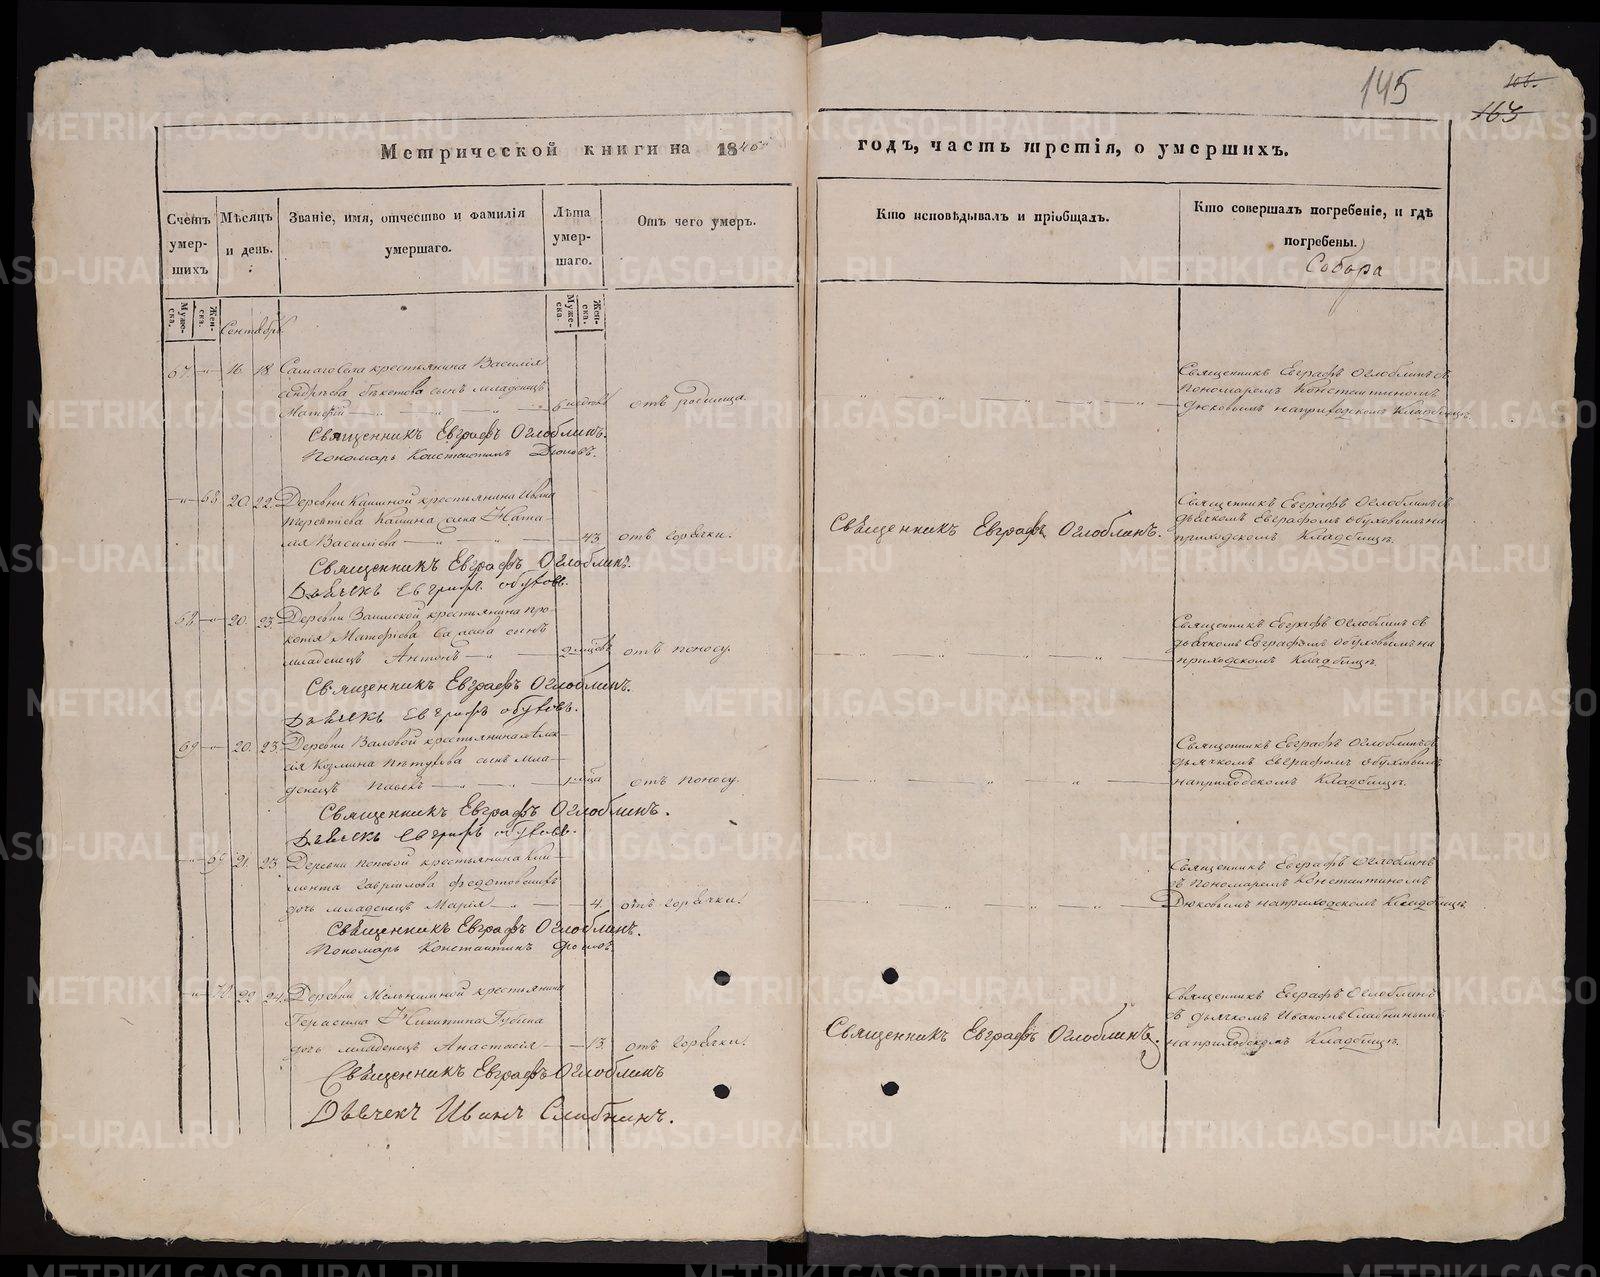 145
106.
163
Метрической книги на 1846й
годъ, часть третія, о умершихъ.
Счетъ умер-шихъ
Мѣсяцъ и день.
Званіе, имя, отчество и фамилія умершаго.
Лѣта умер-шаго.
Отъ чего умеръ.
Кто исповѣдывалъ и пріобщалъ.
Кто совершалъ погребеніе, и гдѣ погребены.
Собора
Муже-ска.
Жен-ска.
Муже-ска.
Жен-ска.
Сентябрь
67 16 18 крестьянина Василія
сынъ младенецъ
6 недѣль отъ родимца.
Священникъ Евграфъ Оглоблинъ съ
пономаремъ Константиномъ
Дюковымъ на приходскомъ Кладбищѣ
Священникъ Евграфъ Оглоблинъ.
Пономарь Константинъ Дюковъ.
68 20. 22. Деревни крестьянина Ивана
жена Ната-
лія Васильева 43. отъ горячки.
Священникъ Евграфъ Оглоблинъ.
Священникъ Евграфъ Оглоблинъ съ
дьячкомъ Евграфомъ Обуховымъ на
приходскомъ Кладбищѣ.
Священникъ Евграфъ Оглоблинъ.
Дьячекъ Евграфъ Обуховъ.
68 20. 23. Деревни крестьянина Про-
копія сынъ
младенецъ Антонъ отъ поносу.
Священникъ Евграфъ Оглоблинъ съ
дьячкомъ Евграфомъ Обуховымъ на
приходскомъ Кладбищѣ.
Священникъ Евграфъ Оглоблинъ.
Дьячекъ Евграфъ Обуховъ.
69 20. 23. Деревни Валовой крестьянина
Козмина Пѣтухова сынъ мла-
денецъ отъ поносу.
Священникъ Евграфъ Оглоблинъ съ
дьячкомъ Евграфомъ Обуховымъ
на приходскомъ Кладбищѣ.
Священникъ Евграфъ Оглоблинъ.
Дьячекъ Евграфъ Обуховъ.
69 21. 23. Деревни Поповой крестьянина Кли-
мента Гаврилова
дочь младенецъ Марія 4. отъ горячки.
Священникъ Евграфъ Оглоблинъ
съ пономаремъ Константиномъ
Дюковымъ на приходскомъ Кладбищѣ
Священникъ Евграфъ Оглоблинъ.
Пономарь Константинъ Дюковъ.
70 22 24. Деревни Мельниной крестьянина
Герасима Никитина Губина
дочь младенецъ Анастасія 13. отъ горячки.
Священникъ Евграфъ Оглоблинъ.
Священникъ Евграфъ Оглоблинъ
съ дьячкомъ Иваномъ Слабнинымъ
на приходскомъ Кладбищѣ.
Священникъ Евграфъ Оглоблинъ
Дьячекъ Иванъ Слабнинъ.
METRIKI.GASO-URAL.RU